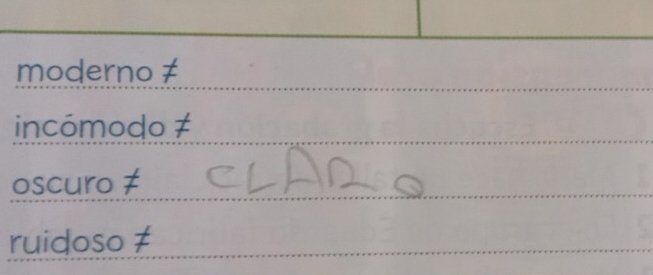 moderno ≠
incómodo ≠
oscuro ≠ CLARO
ruidoso ≠